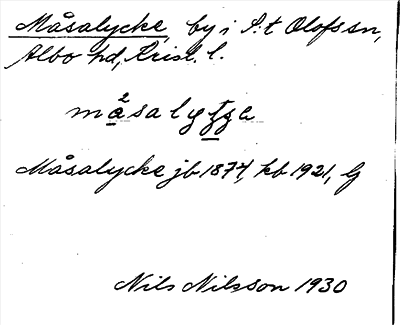 Måsalycke, by i S:t Olofs sn,
Albo hd, Krist. l.
må²salyǥge
Måsalycke jb 1874, kb 1921, G
Nils Nilsson 1930